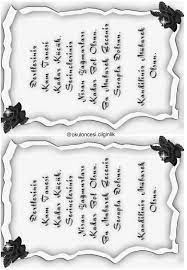 Dertleriniz
Kum Tanesi
Kadar Küçük,
Sevinçleriniz
Nisan Yağmurları
Kadar Bol Olsun.
Bu Mübarek Geceniz
Sevapla Dolsun.
Kandiliniz Mübarek
Olsun.
@okuloncesi.cilginlik
Dertleriniz
Kum Tanesi
Kadar Küçük,
Sevinçleriniz
Nisan Yağmurları
Kadar Bol Olsun.
Bu Mübarek Geceniz
Sevapla Dolsun.
Kandiliniz Mübarek
Olsun.